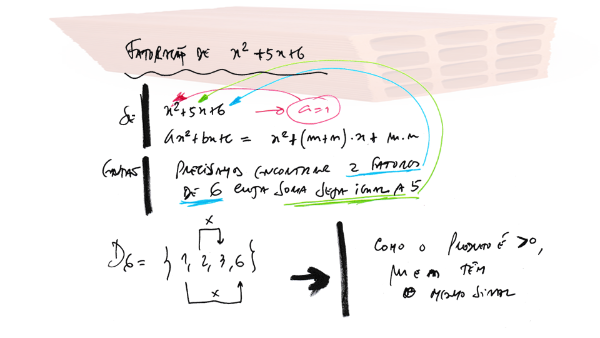 FATORAÇÃO DE x² + 5x + 6
SE
x² + 5x + 6 → a = 1
ax² + bx + c = x² + (m + n) · x + m · n
ENTÃO
PRECISAMOS ENCONTRAR 2 FATORES
DE 6 CUJA SOMA SEJA IGUAL A 5
x
D₆ = { 1, 2, 3, 6 }
x
COMO O PRODUTO É > 0,
m e n TÊM
O MESMO SINAL